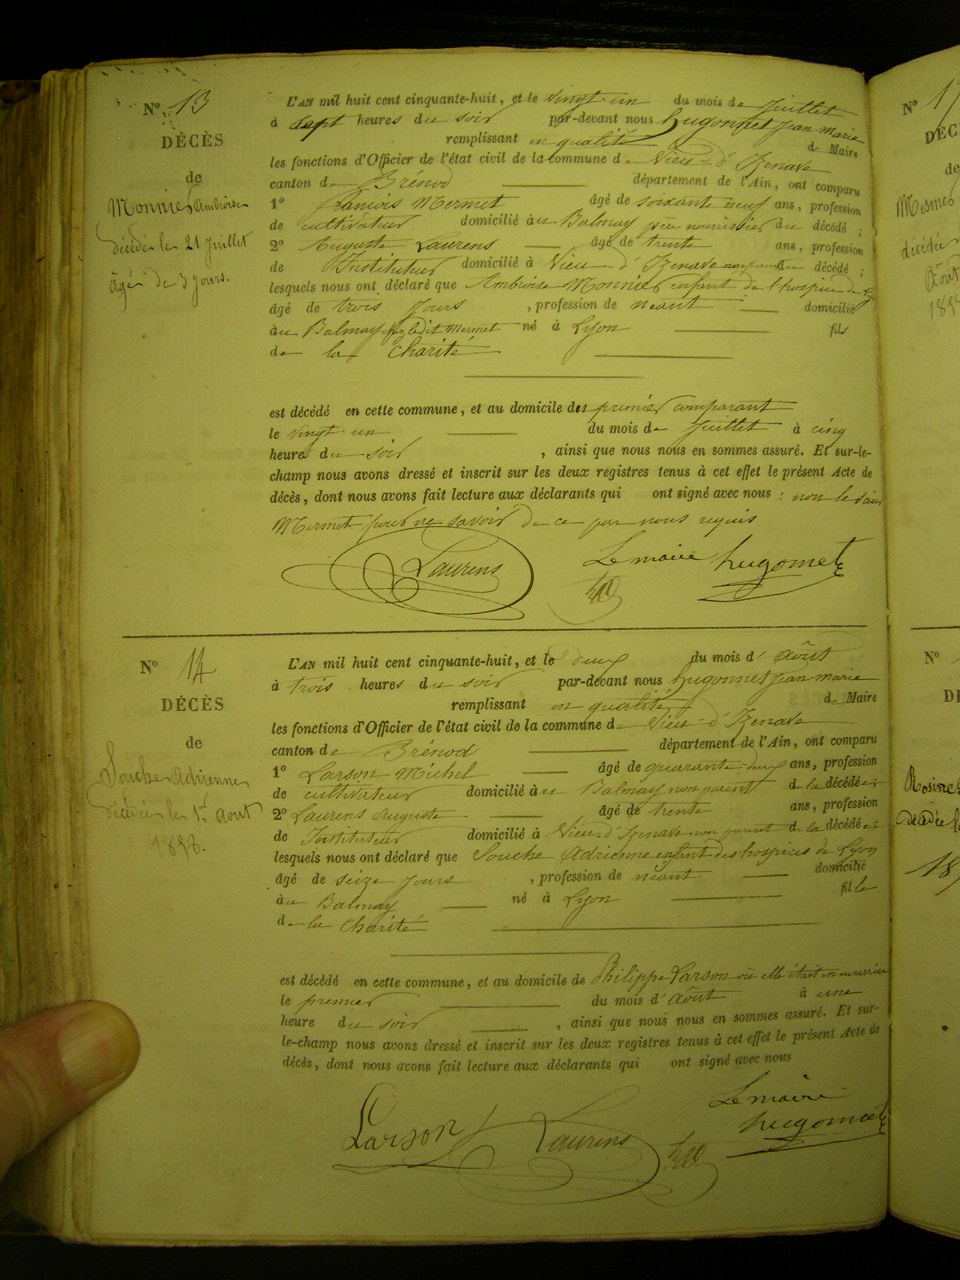 N° 13
DÉCÈS
de
Monnier Ambroise
décédé le 21 Juillet
âgé de 3 jours.
L'AN mil huit cent cinquante-huit, et le vingt-un du mois de Juillet
à sept heures du soir par-devant nous Hugonnet Jean marie
remplissant en qualité de Maire
les fonctions d'Officier de l'état civil de la commune de Vieu-d'Izenave
canton de Brénod département de l'Ain, ont comparu
1° François Mermet âgé de soixante neuf ans, profession
de cultivateur domicilié au Balmay père nourricier du décédé ;
2° Auguste Laurens âgé de trente ans, profession
de Instituteur domicilié à Vieu-d'Izenave du décédé ;
lesquels nous ont déclaré que Ambroise Monnier enfant de l'hospice de
âgé de trois jours , profession de néant domicilié
au Balmay ledit Mermet né à Lyon fils
de la Charité
est décédé en cette commune, et au domicile du premier comparant
le vingt-un du mois de Juillet à cinq
heure du soir , ainsi que nous nous en sommes assuré. Et sur-le-
champ nous avons dressé et inscrit sur les deux registres tenus à cet effet le présent Acte de
décès, dont nous avons fait lecture aux déclarants qui ont signé avec nous : non le
Mermet pour ne savoir de ce par nous requis
Laurens Le maire hugonnet
N° 14
DÉCÈS
de
Souche Adrienne
décédée le 1er Août
1858.
L'AN mil huit cent cinquante-huit, et le deux du mois d'Août
à trois heures du soir par-devant nous hugonnet jean-marie
remplissant en qualité de Maire
les fonctions d'Officier de l'état civil de la commune de Vieu-d'Izenave
canton de Brénod département de l'Ain, ont comparu
1° Larson Michel âgé de quarante-deux ans, profession
de cultivateur domicilié au Balmay non parent de la décédée ;
2° Laurens Auguste âgé de trente ans, profession
de Instituteur domicilié à Vieu-d'Izenave non parent de la décédée ;
lesquels nous ont déclaré que Souche Adrienne enfant des hospices de Lyon
âgé de seize jours , profession de néant domicilié
au Balmay né à Lyon fille
de la Charité
est décédé en cette commune, et au domicile de Philippe Larson où elle était en nourrice
le premier du mois d'Août à une
heure du soir , ainsi que nous nous en sommes assuré. Et sur-
le-champ nous avons dressé et inscrit sur les deux registres tenus à cet effet le présent Acte de
décès, dont nous avons fait lecture aux déclarants qui ont signé avec nous
Larson Laurens Le maire
hugonnet